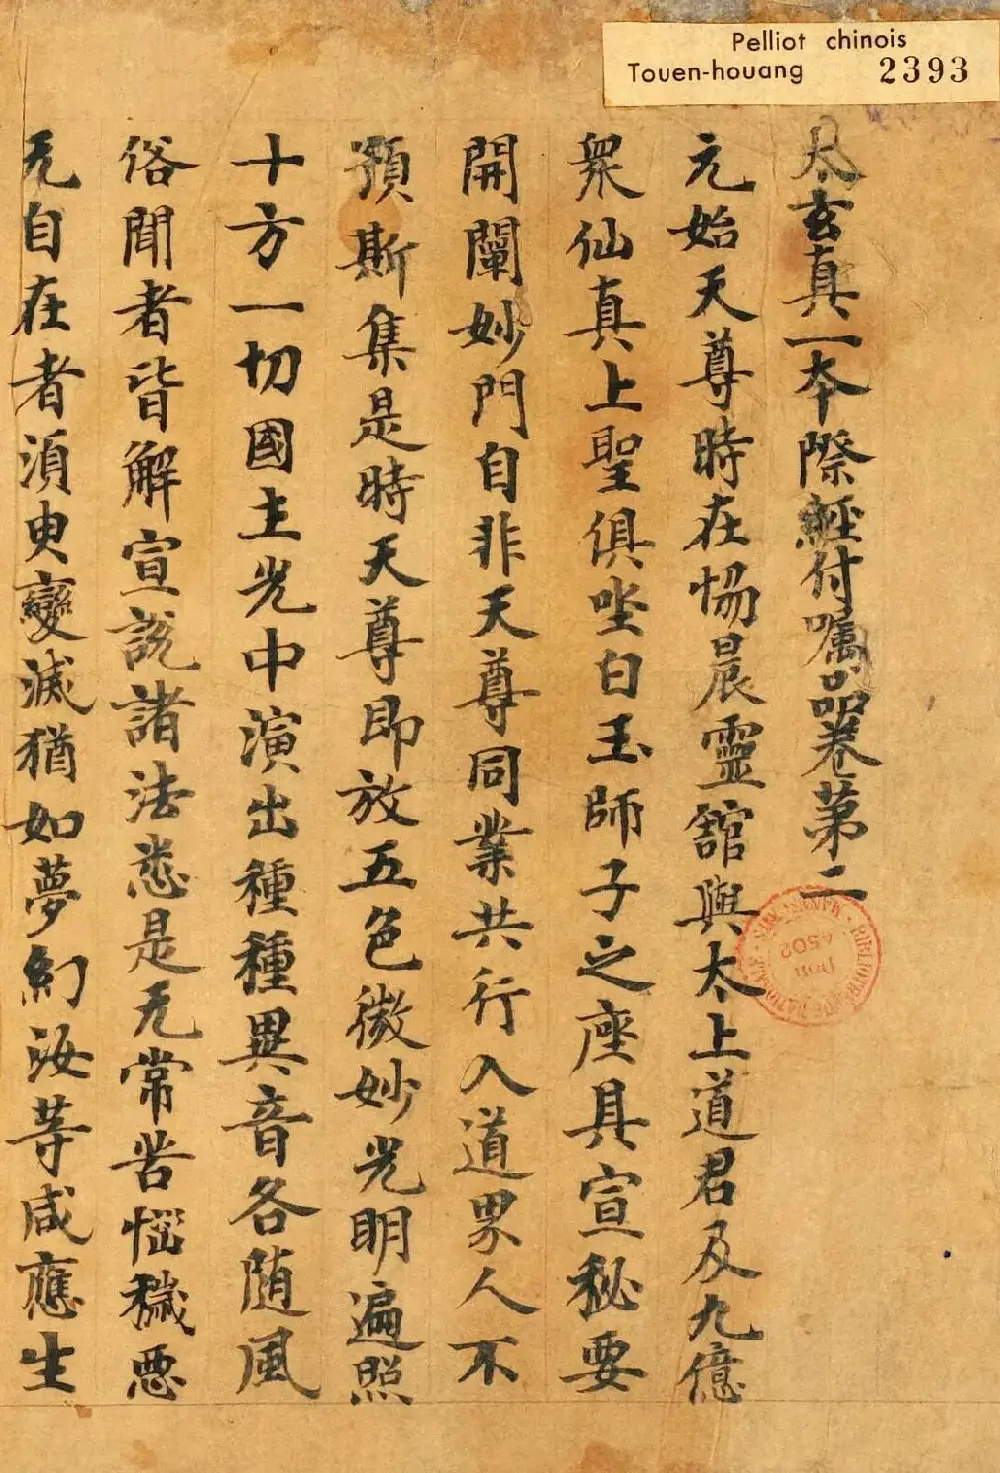 Pelliot chinois
Touen-houang 2393
太玄真一本際經付囑品卷第二
元始天尊時在惕晨靈舘與太上道君及九億
衆仙真上聖俱坐白玉師子之座具宣秘要
開闡妙門自非天尊同業共行入道界人不
預斯集是時天尊即放五色微妙光明遍照
十方一切國土光中演出種種異音各随風
俗聞者皆解宣説諸法悉是无常苦惱穢惡
无自在者湏臾變滅猶如夢幻汝等咸應生
4502